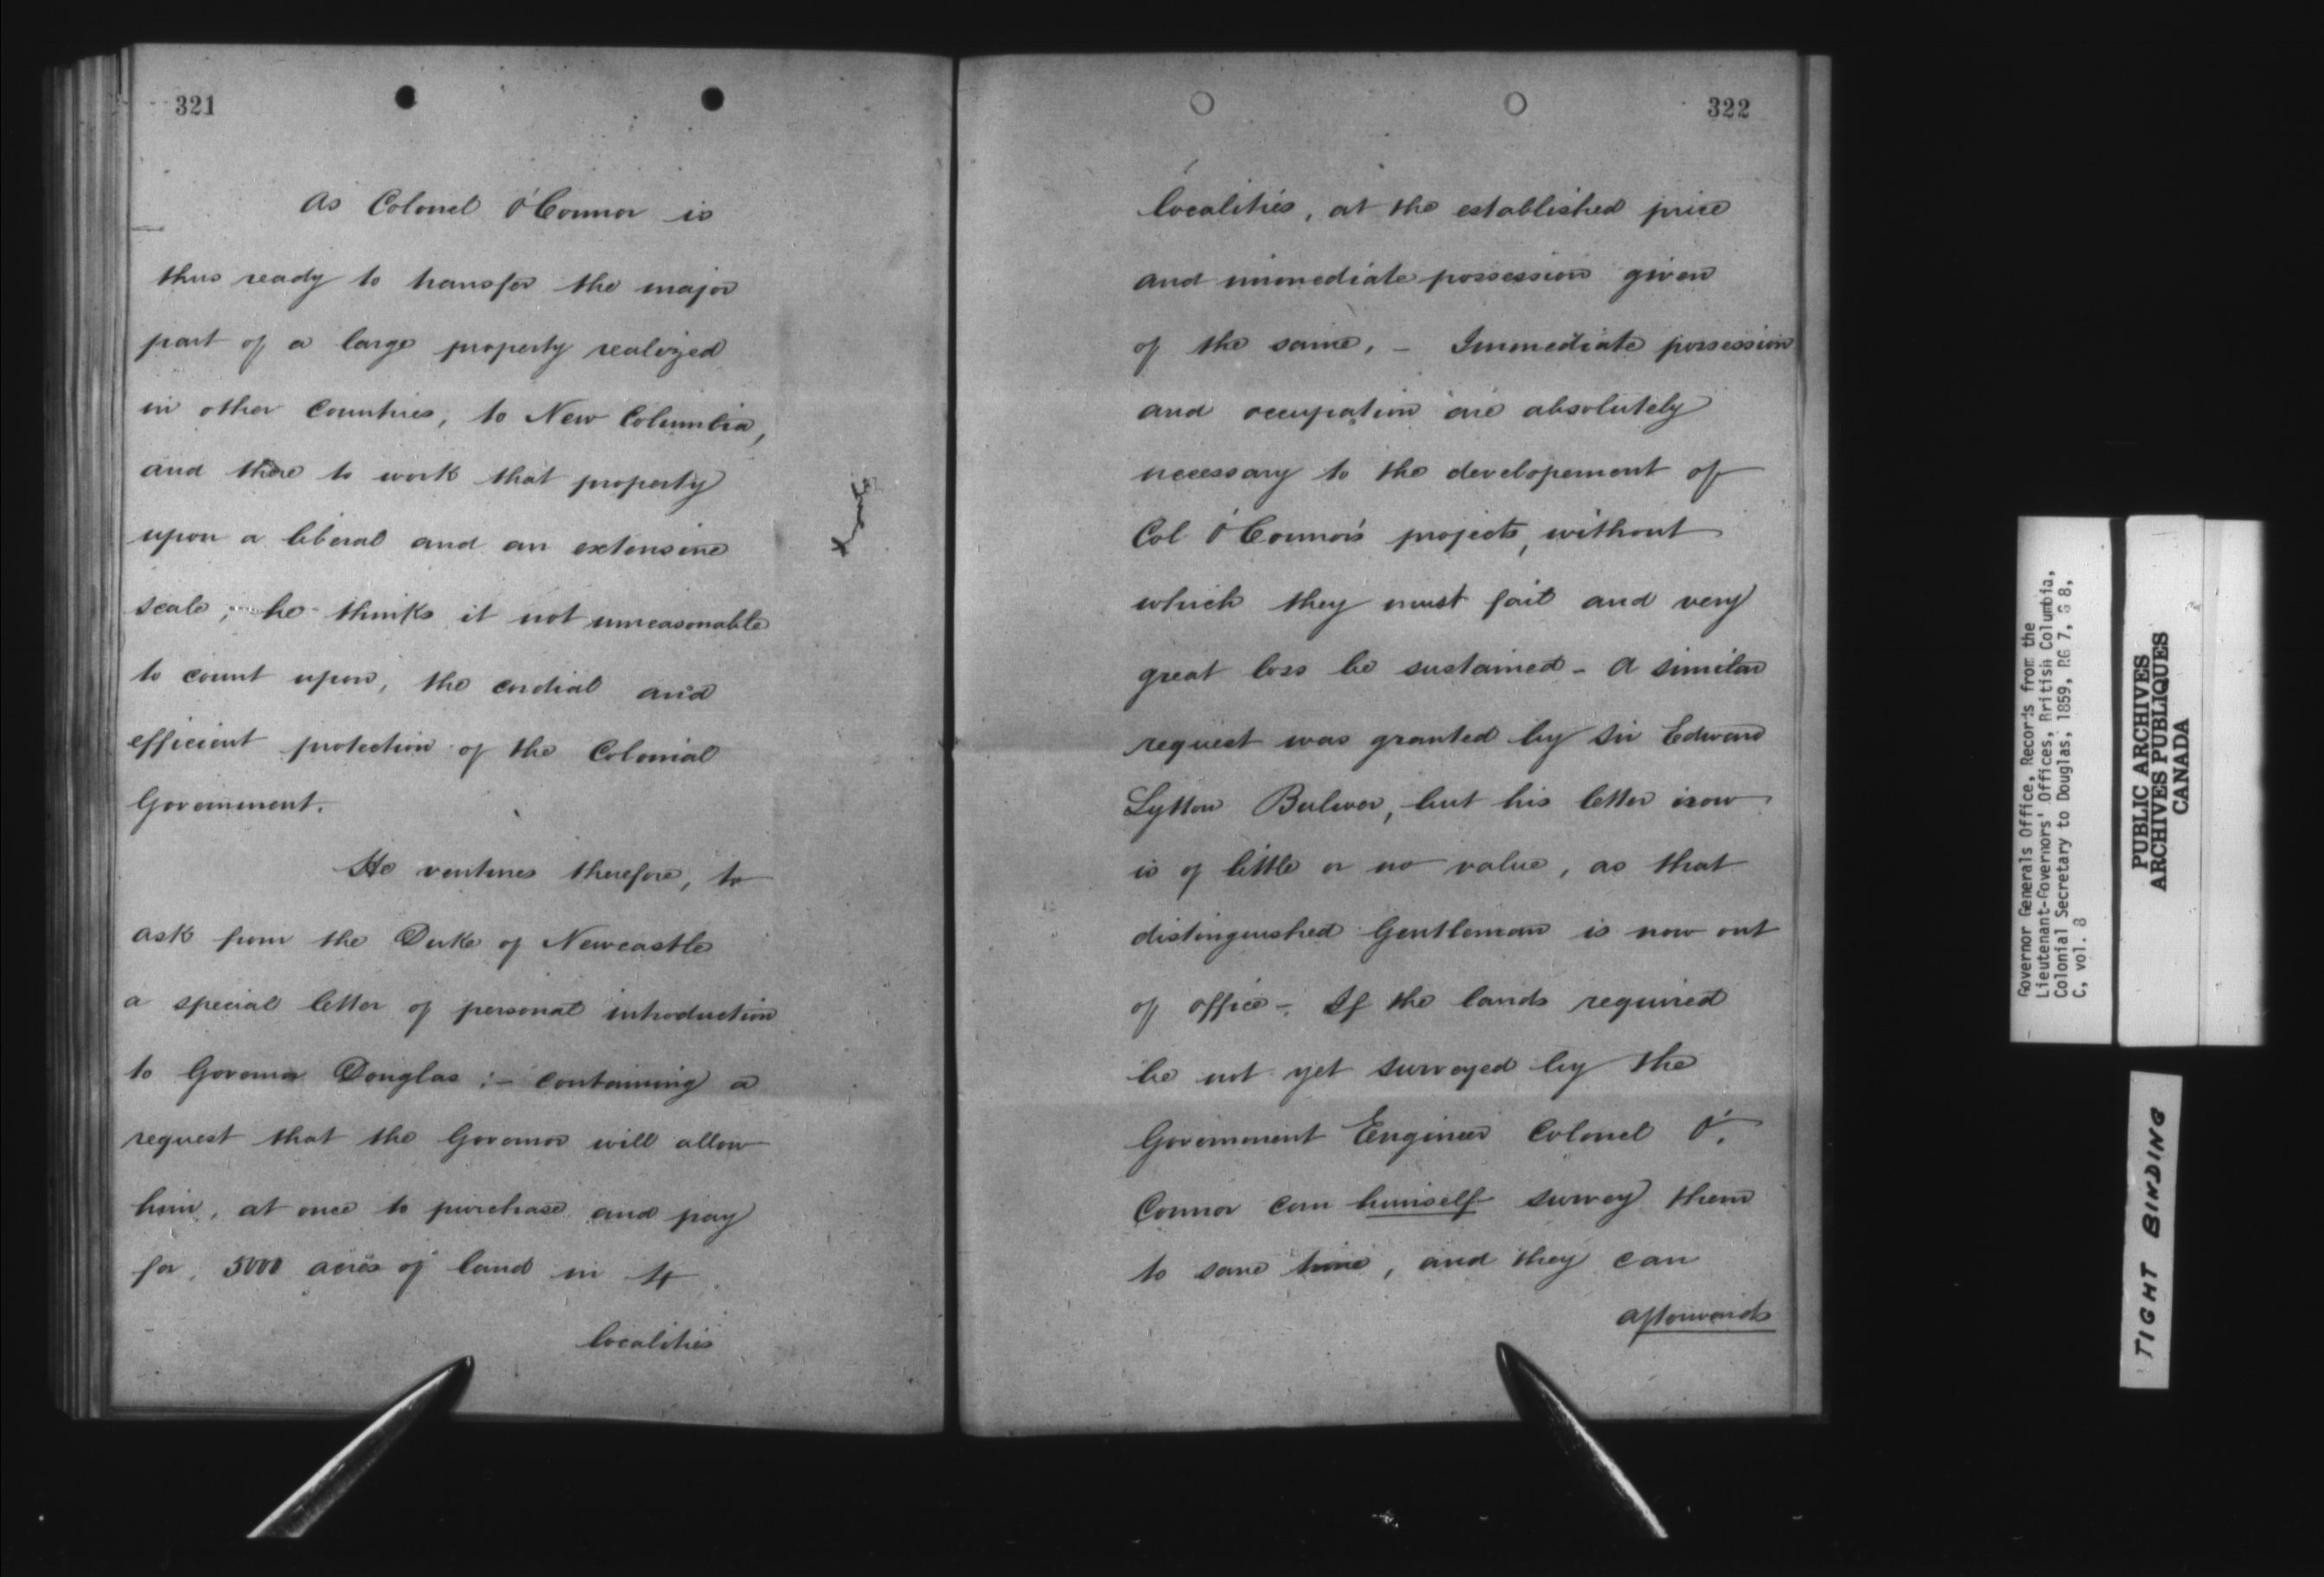 321
As Colonel O'Connor is
thus ready to transfer the major
part of a large property realized
in other Countries, to New Columbia,
and there to work that property
upon a liberal and an extensive
scale; he thinks it not unreasonable
to count upon, the cordial and
efficient protection of the Colonial
Government.
He ventures therefore, to
ask from the Duke of Newcastle
a special letter of personal introduction
to Governor Douglas :- containing a
request that the Governor will allow
him, at once to purchase and pay
for, 5000 acres of land in 4
localities
322
localities, at the established price
and immediate possession given
of the same. - Immediate possession
and occupation are absolutely
necessary to the developement of
Col O'Connor's projects, without
which they must fail and very
great loss be sustained - A similar
request was granted by Sir Edward
Lytton Bulwer, but his letter now
is of little or no value, as that
distinguished Gentleman is now out
of office -. If the lands required
be not yet surveyed by the
Government Engineer Colonel O'.
Connor can himself survey them
to save time, and they can
afterwards
Governor Generals Office, Records from the
Lieutenant-Governors' Offices, British Columbia,
Colonial Secretary to Douglas, 1859, RG 7, G 8,
C, vol. 8
PUBLIC ARCHIVES
ARCHIVES PUBLIQUES
CANADA
TIGHT BINDING